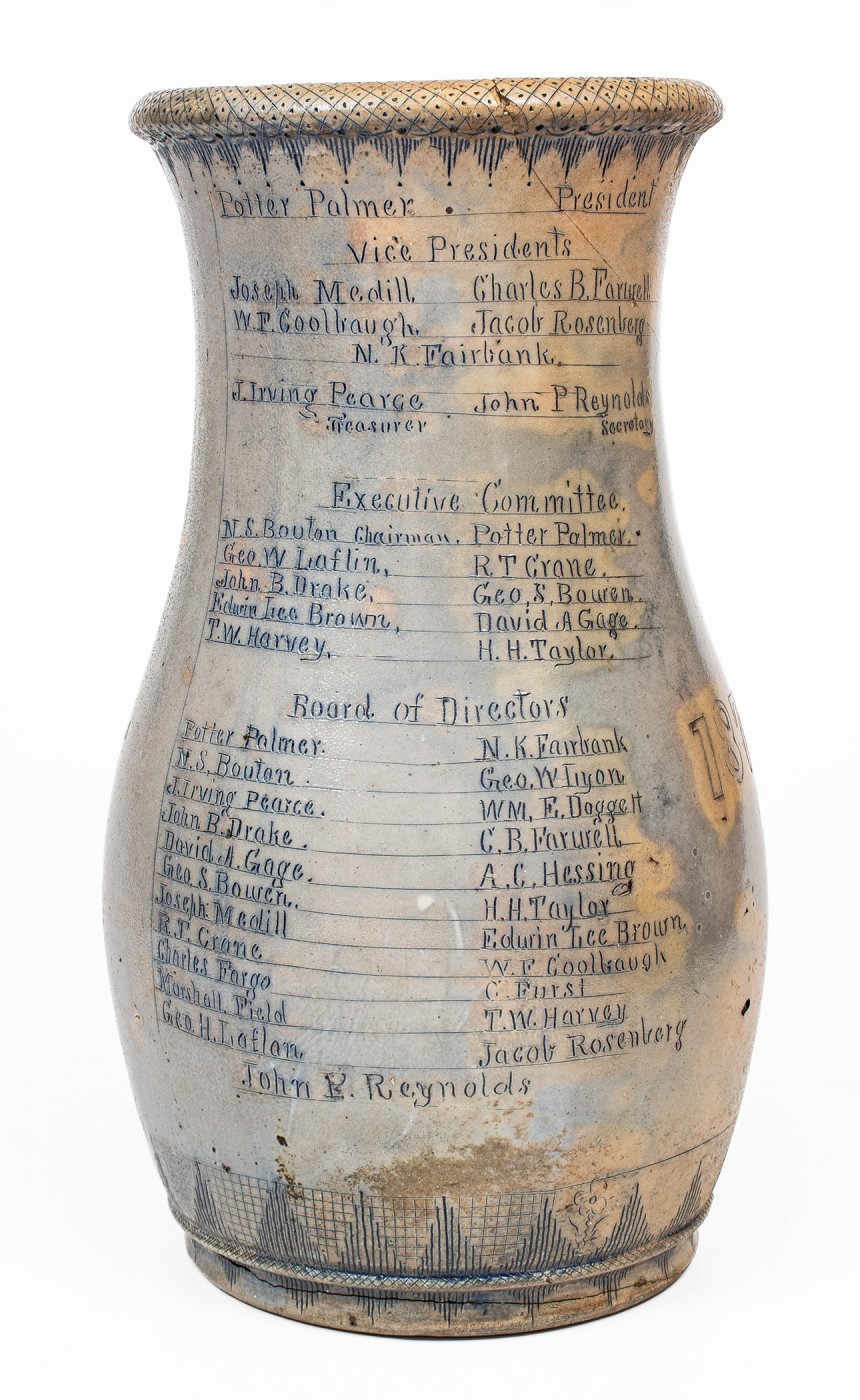 Potter Palmer . President
Vice Presidents
Joseph Medill, Charles B. Farwell
W.F. Coolbaugh, Jacob Rosenberg
N. K. Fairbank.
J. Irving Pearce John P Reynolds
Treasurer Secretary
Executive Committee.
N.S. Bouton Chairman, Potter Palmer.
Geo. W Laflin, R T Crane.
John B. Drake, Geo, S, Bowen.
Edwin Lee Brown, David A Gage.
T.W. Harvey, H. H. Taylor.
Board of Directors
Potter Palmer. N. K. Fairbank
N. S. Bouton . Geo. W Lyon
J. Irving Pearce. WM, E, Doggett
John B. Drake . C. B. Farwell
David A. Gage. A. C, Hessing
Geo. S. Bowen. H.H. Taylor
Joseph Medill Edwin Lee Brown,
R. T. Crane W. F Coolbaugh
Charles Fargo C. Furst
Marshall Field T.W. Harvey
Geo. H. Laflan, Jacob Rosenberg
John P. Reynolds
187